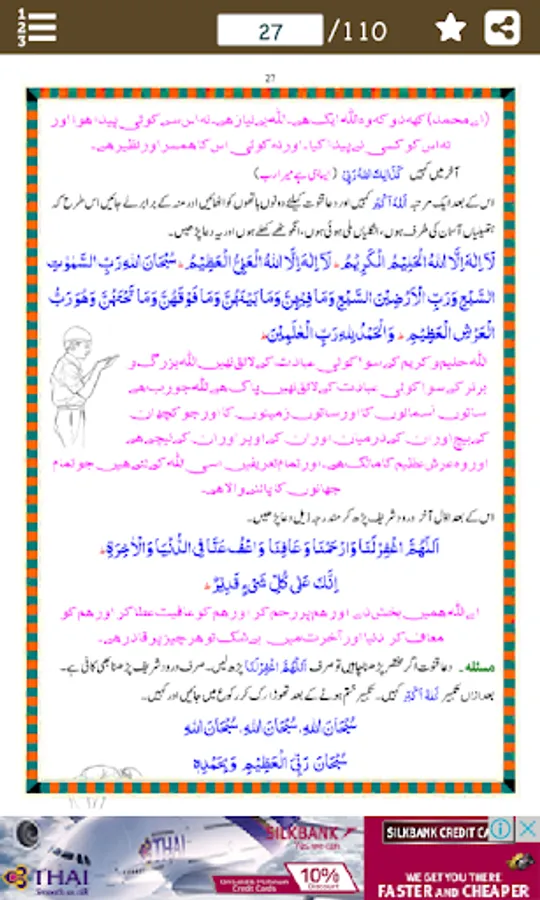 1
2
3
27
/110
27
(اے محمد) کہہ دو کہ وہ اللہ ایک ہے۔ اللہ بے نیاز ہے۔ نہ اس سے کوئی پیدا ہوا اور
نہ اس کو کسی نے پیدا کیا۔ اور نہ کوئی اس کا ہمسر اور نظیر ہے۔
آخر میں کہیں كَذٰلِكَ اللهُ رَبِّيْ (ایسا ہی ہے میرا رب)
اس کے بعد ایک مرتبہ اَللهُ اَكْبَرُ کہیں اور دعا قنوت کیلئے دونوں ہاتھوں کو اٹھائیں اور منہ کے برابر لے جائیں اس طرح کہ
ہتھیلیاں آسمان کی طرف ہوں، انگلیاں ملی ہوئی ہوں، انگوٹھے کھلے ہوں اور یہ دعا پڑھیں۔
لَآ اِلٰهَ اِلَّا اللهُ الْحَلِيْمُ الْكَرِيْمُ ۔ لَآ اِلٰهَ اِلَّا اللهُ الْعَلِيُّ الْعَظِيْمُ ۔ سُبْحَانَ اللهِ رَبِّ السَّمٰوٰتِ
السَّبْعِ وَرَبِّ الْاَرْضِيْنَ السَّبْعِ وَمَا فِيْهِنَّ وَمَا بَيْنَهُنَّ وَمَا فَوْقَهُنَّ وَمَا تَحْتَهُنَّ وَهُوَ رَبُّ
الْعَرْشِ الْعَظِيْمِ ۔ وَالْحَمْدُ لِلهِ رَبِّ الْعٰلَمِيْنَ۔
اللہ حلیم و کریم کے سوا کوئی عبادت کے لائق نہیں اللہ بزرگ و
برتر کے سوا کوئی عبادت کے لائق نہیں پاک ہے اللہ جو رب ہے
ساتوں آسمانوں کا اور ساتوں زمینوں کا اور جو کچھ ان
کے بیچ اور ان کے درمیان اور ان کے اوپر اور ان کے نیچے ہے
اور وہ عرش عظیم کا مالک ہے۔ اور تمام تعریفیں اسی اللہ کے لئے ہیں جو تمام
جہانوں کا پالنے والا ہے۔
اس کے بعد اول آخر درود شریف پڑھ کر مندرجہ ذیل دعا پڑھیں۔
اَللّٰهُمَّ اغْفِرْ لَنَا وَارْحَمْنَا وَعَافِنَا وَاعْفُ عَنَّا فِي الدُّنْيَا وَالْاٰخِرَةِ۔
اِنَّكَ عَلٰى كُلِّ شَيْءٍ قَدِيْرٌ۔
اے اللہ ہمیں بخش دے اور ہم پر رحم کر اور ہم کو عافیت عطا کر اور ہم کو
معاف کر دنیا اور آخرت میں۔ بے شک تو ہر چیز پر قادر ہے۔
مسئلہ۔ دعا قنوت اگر مختصر پڑھنا چاہیں تو صرف اَللّٰهُمَّ اغْفِرْ لَنَا پڑھ لیں۔ صرف درود شریف پڑھنا بھی کافی ہے۔
بعد ازاں تکبیر اَللهُ اَكْبَرُ کہیں۔ تکبیر ختم ہونے کے بعد تھوڑا رک کر رکوع میں جائیں اور کہیں۔
سُبْحَانَ اللهِ، سُبْحَانَ اللهِ، سُبْحَانَ اللهِ
سُبْحَانَ رَبِّيَ الْعَظِيْمِ وَبِحَمْدِهٖ
THAI
SILKBANK
Yes we can
THAI
Smooth as silk
Credit Cards
10%
Discount
SILKBANK CREDIT CA
WE GET YOU THERE
FASTER AND CHEAPER